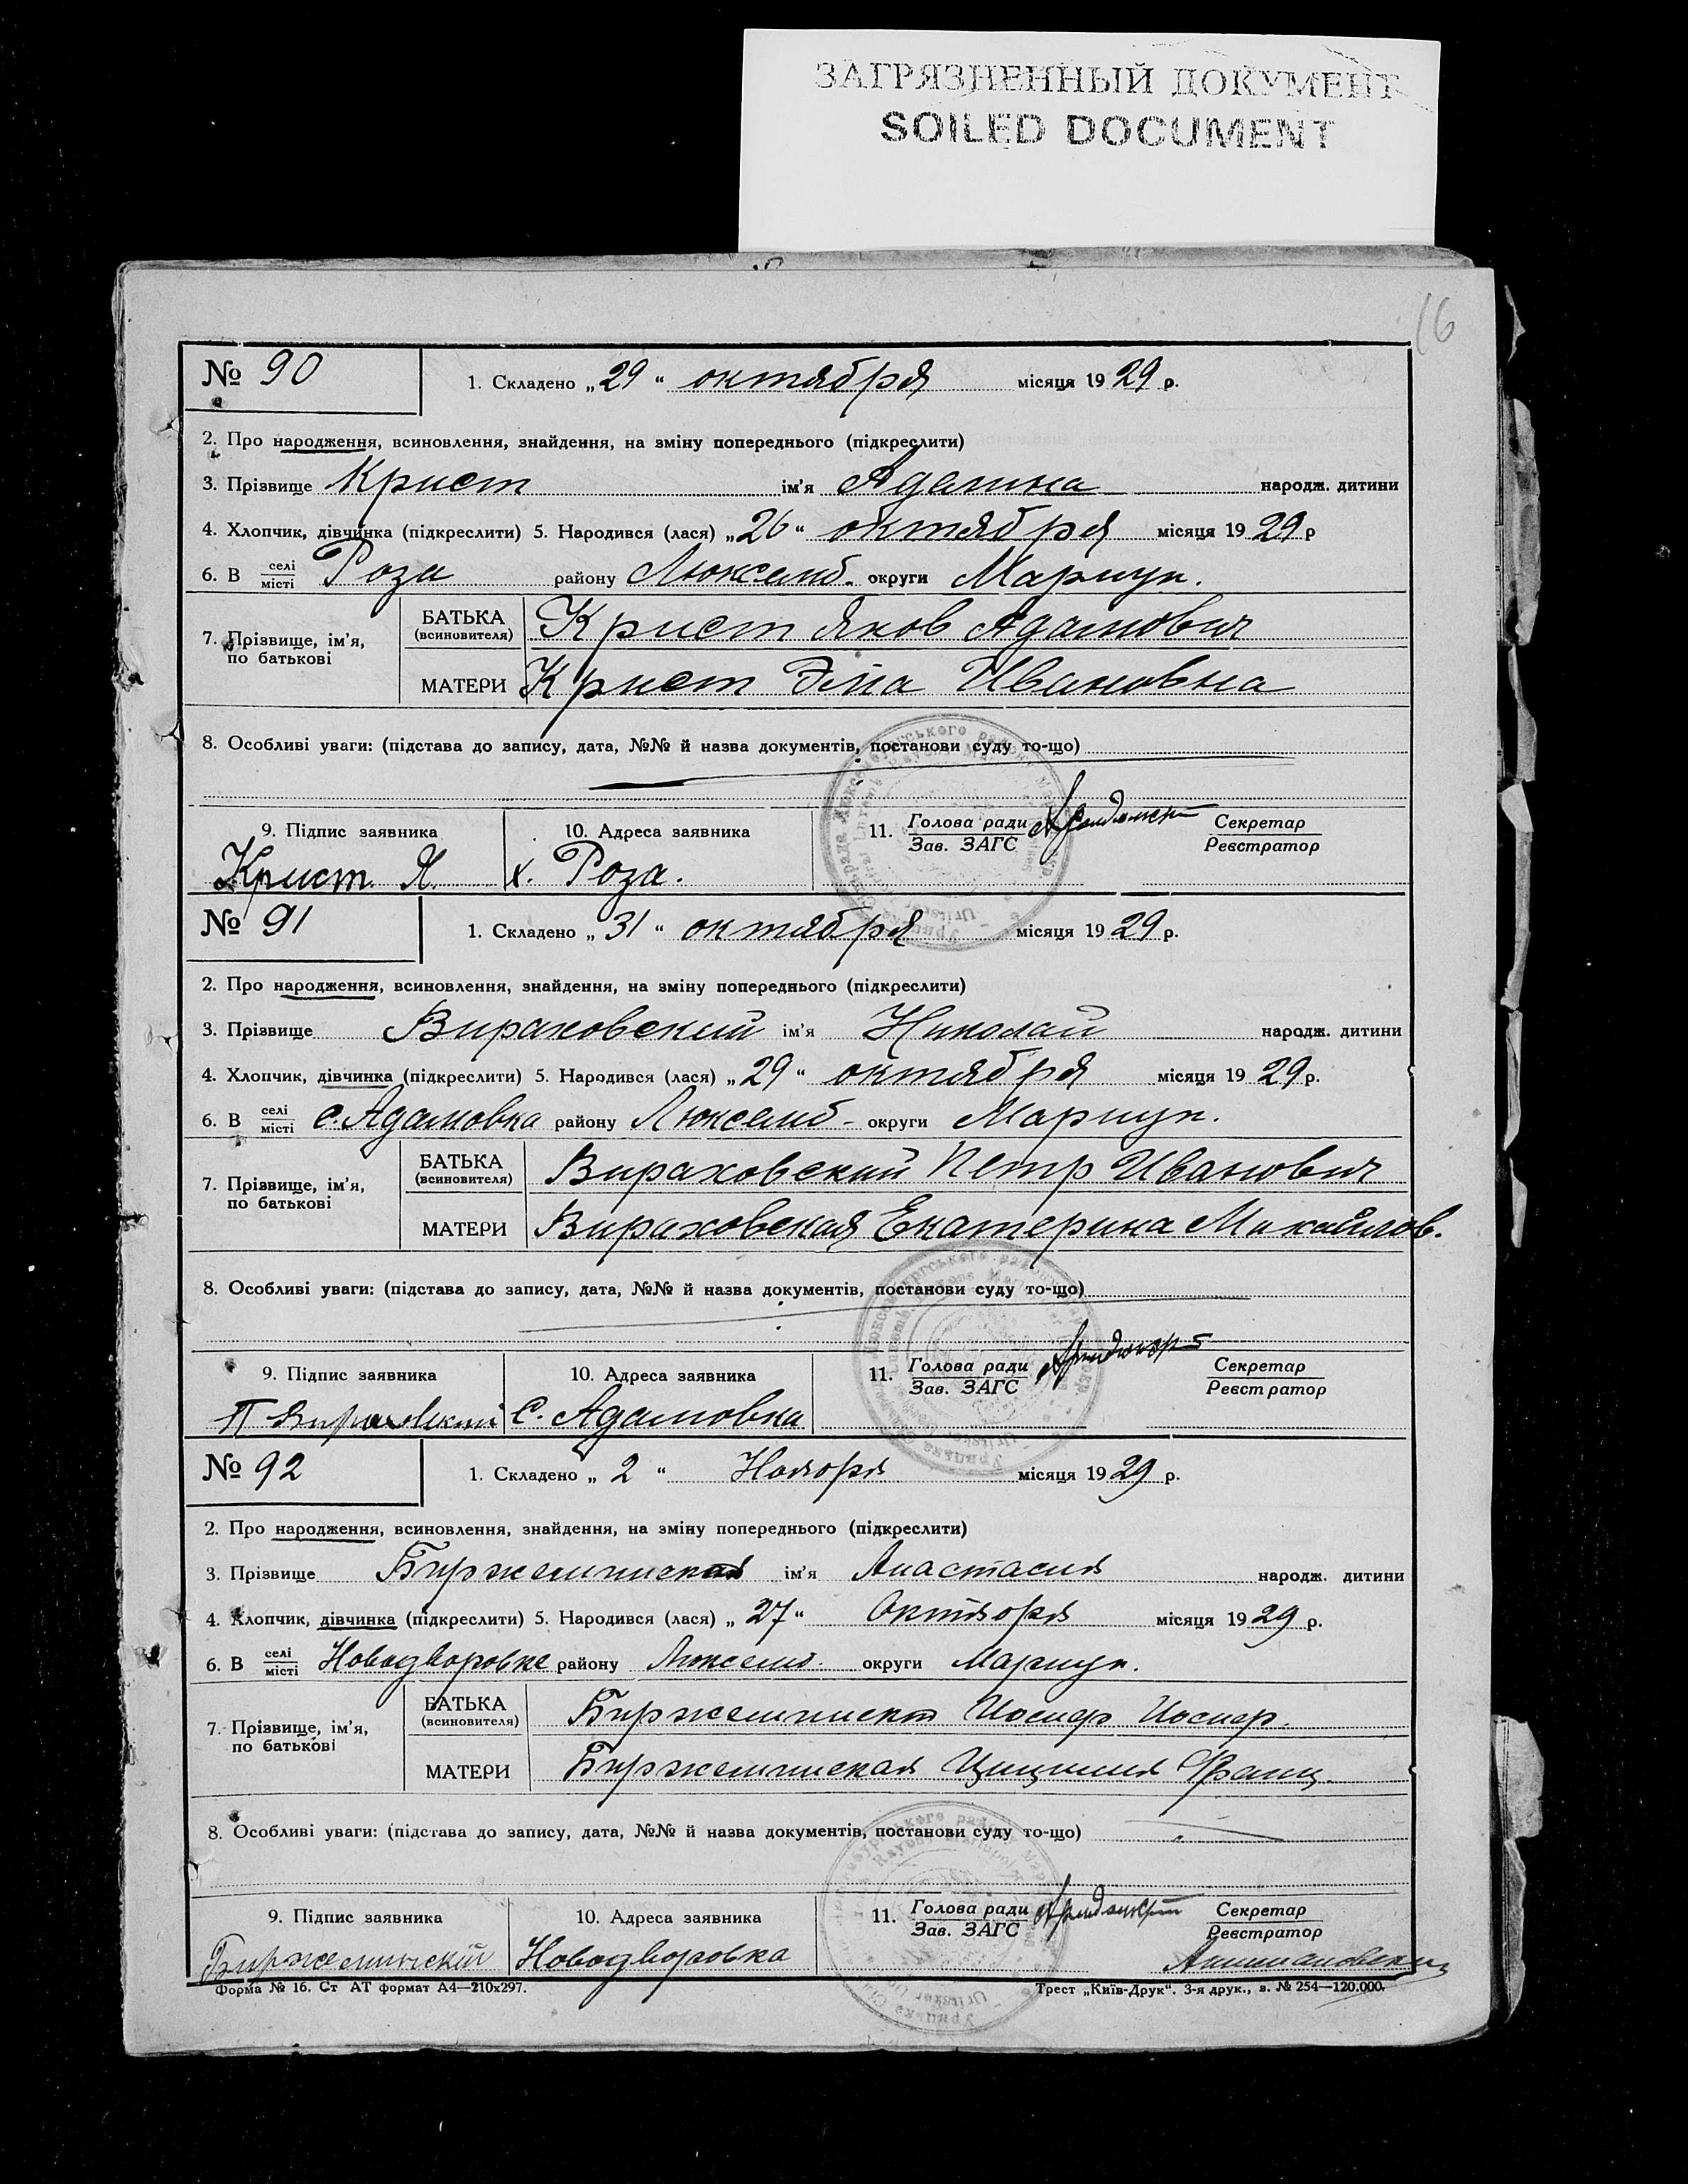 ЗАГРЯЗНЕННЫЙ ДОКУМЕНТ
SOILED DOCUMENT
16
№ 90
1. Складено „29“ октября місяця 1929 р.
2. Про народження, всиновлення, знайдення, на зміну попереднього (підкреслити)
3. Прізвище Крист ім'я Адалина народж. дитини
4. Хлопчик, дівчинка (підкреслити) 5. Народився (лася) „26“ октября місяця 1929 р
6. В селі/місті Роза району Люксемб. округи Мариуп.
7. Прізвище, ім'я, по батькові
БАТЬКА (всиновителя) Крист Яков Адамович
МАТЕРИ Крист Эма Ивановна
8. Особливі уваги: (підстава до запису, дата, №№ й назва документів, постанови суду то-що)
9. Підпис заявника
10. Адреса заявника
11. Голова ради/Зав. ЗАГС
Секретар/Реєстратор
Крист Я. х. Роза.
№ 91
1. Складено „31“ октября місяця 1929 р.
2. Про народження, всиновлення, знайдення, на зміну попереднього (підкреслити)
3. Прізвище Вираховский ім'я Николай народж. дитини
4. Хлопчик, дівчинка (підкреслити) 5. Народився (лася) „29“ октября місяця 1929 р.
6. В селі/місті с. Адамовка району Люксемб- округи Мариуп.
7. Прізвище, ім'я, по батькові
БАТЬКА (всиновителя) Вираховский Петр Иванович
МАТЕРИ Вираховская Екатерина Михайлов.
8. Особливі уваги: (підстава до запису, дата, №№ й назва документів, постанови суду то-що)
9. Підпис заявника
10. Адреса заявника
11. Голова ради/Зав. ЗАГС
Секретар/Реєстратор
П Вираховский С. Адамовка
№ 92
1. Складено „2“ Ноября місяця 1929 р.
2. Про народження, всиновлення, знайдення, на зміну попереднього (підкреслити)
3. Прізвище ім'я Анастасия народж. дитини
4. Хлопчик, дівчинка (підкреслити) 5. Народився (лася) „27“ Октября місяця 1929 р.
6. В селі/місті Новодворовке району Люксемб. округи Мариуп.
7. Прізвище, ім'я, по батькові
БАТЬКА (всиновителя) Иосиф Иосиф.
МАТЕРИ Франц.
8. Особливі уваги: (підстава до запису, дата, №№ й назва документів, постанови суду то-що)
9. Підпис заявника
10. Адреса заявника
11. Голова ради/Зав. ЗАГС
Секретар/Реєстратор
Новодворовка
Форма № 16. Ст АТ формат А4—210х297.
Трест „Київ-Друк“. 3-я друк., в. № 254—120.000.